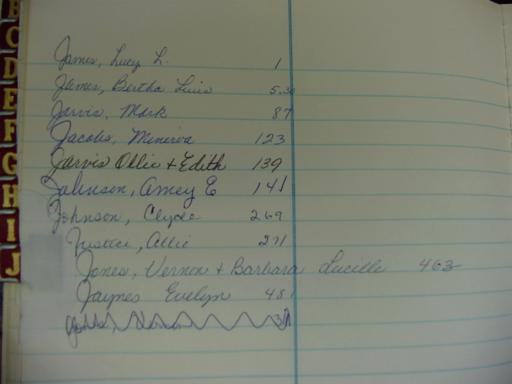 B
C
D
E
F
G
H
I
J
James, Lucy L. 1
James, Bertha 5
Jarvis, Mark 87
Jacobs, Minerva 123
Jarvis Ollie + Edith 139
Johnson, Amey E 141
Johnson, Clyde 269
Justice, Allie 271
Jones, Vernon + Barbara Lucille 463
Jaynes Evelyn 481